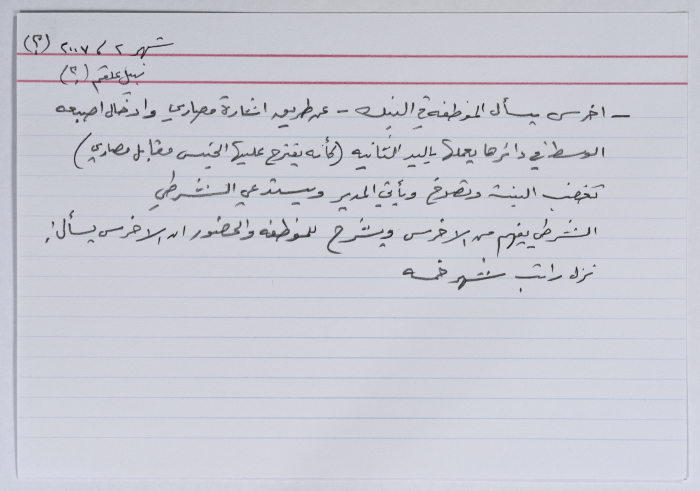 شهر ٢ / ٢٠٠٧ (؟)
نبيل علقم (؟)
- اخرس يسأل الموظفة في البنك - عن طريق اشارة مصاري وادخال اصبعه
الوسطى في دائرها يعملها باليد الثانيه (كأنه يقترح عليها الجنس مقابل مصاري)
تغضب البنت وتصرخ ويأتي المدير ويستدعي الشرطي
الشرطي يفهم من الاخرس ويشرح للموظفه والحضور ان الاخرس يسأل:
نزل راتب شهر خمسه